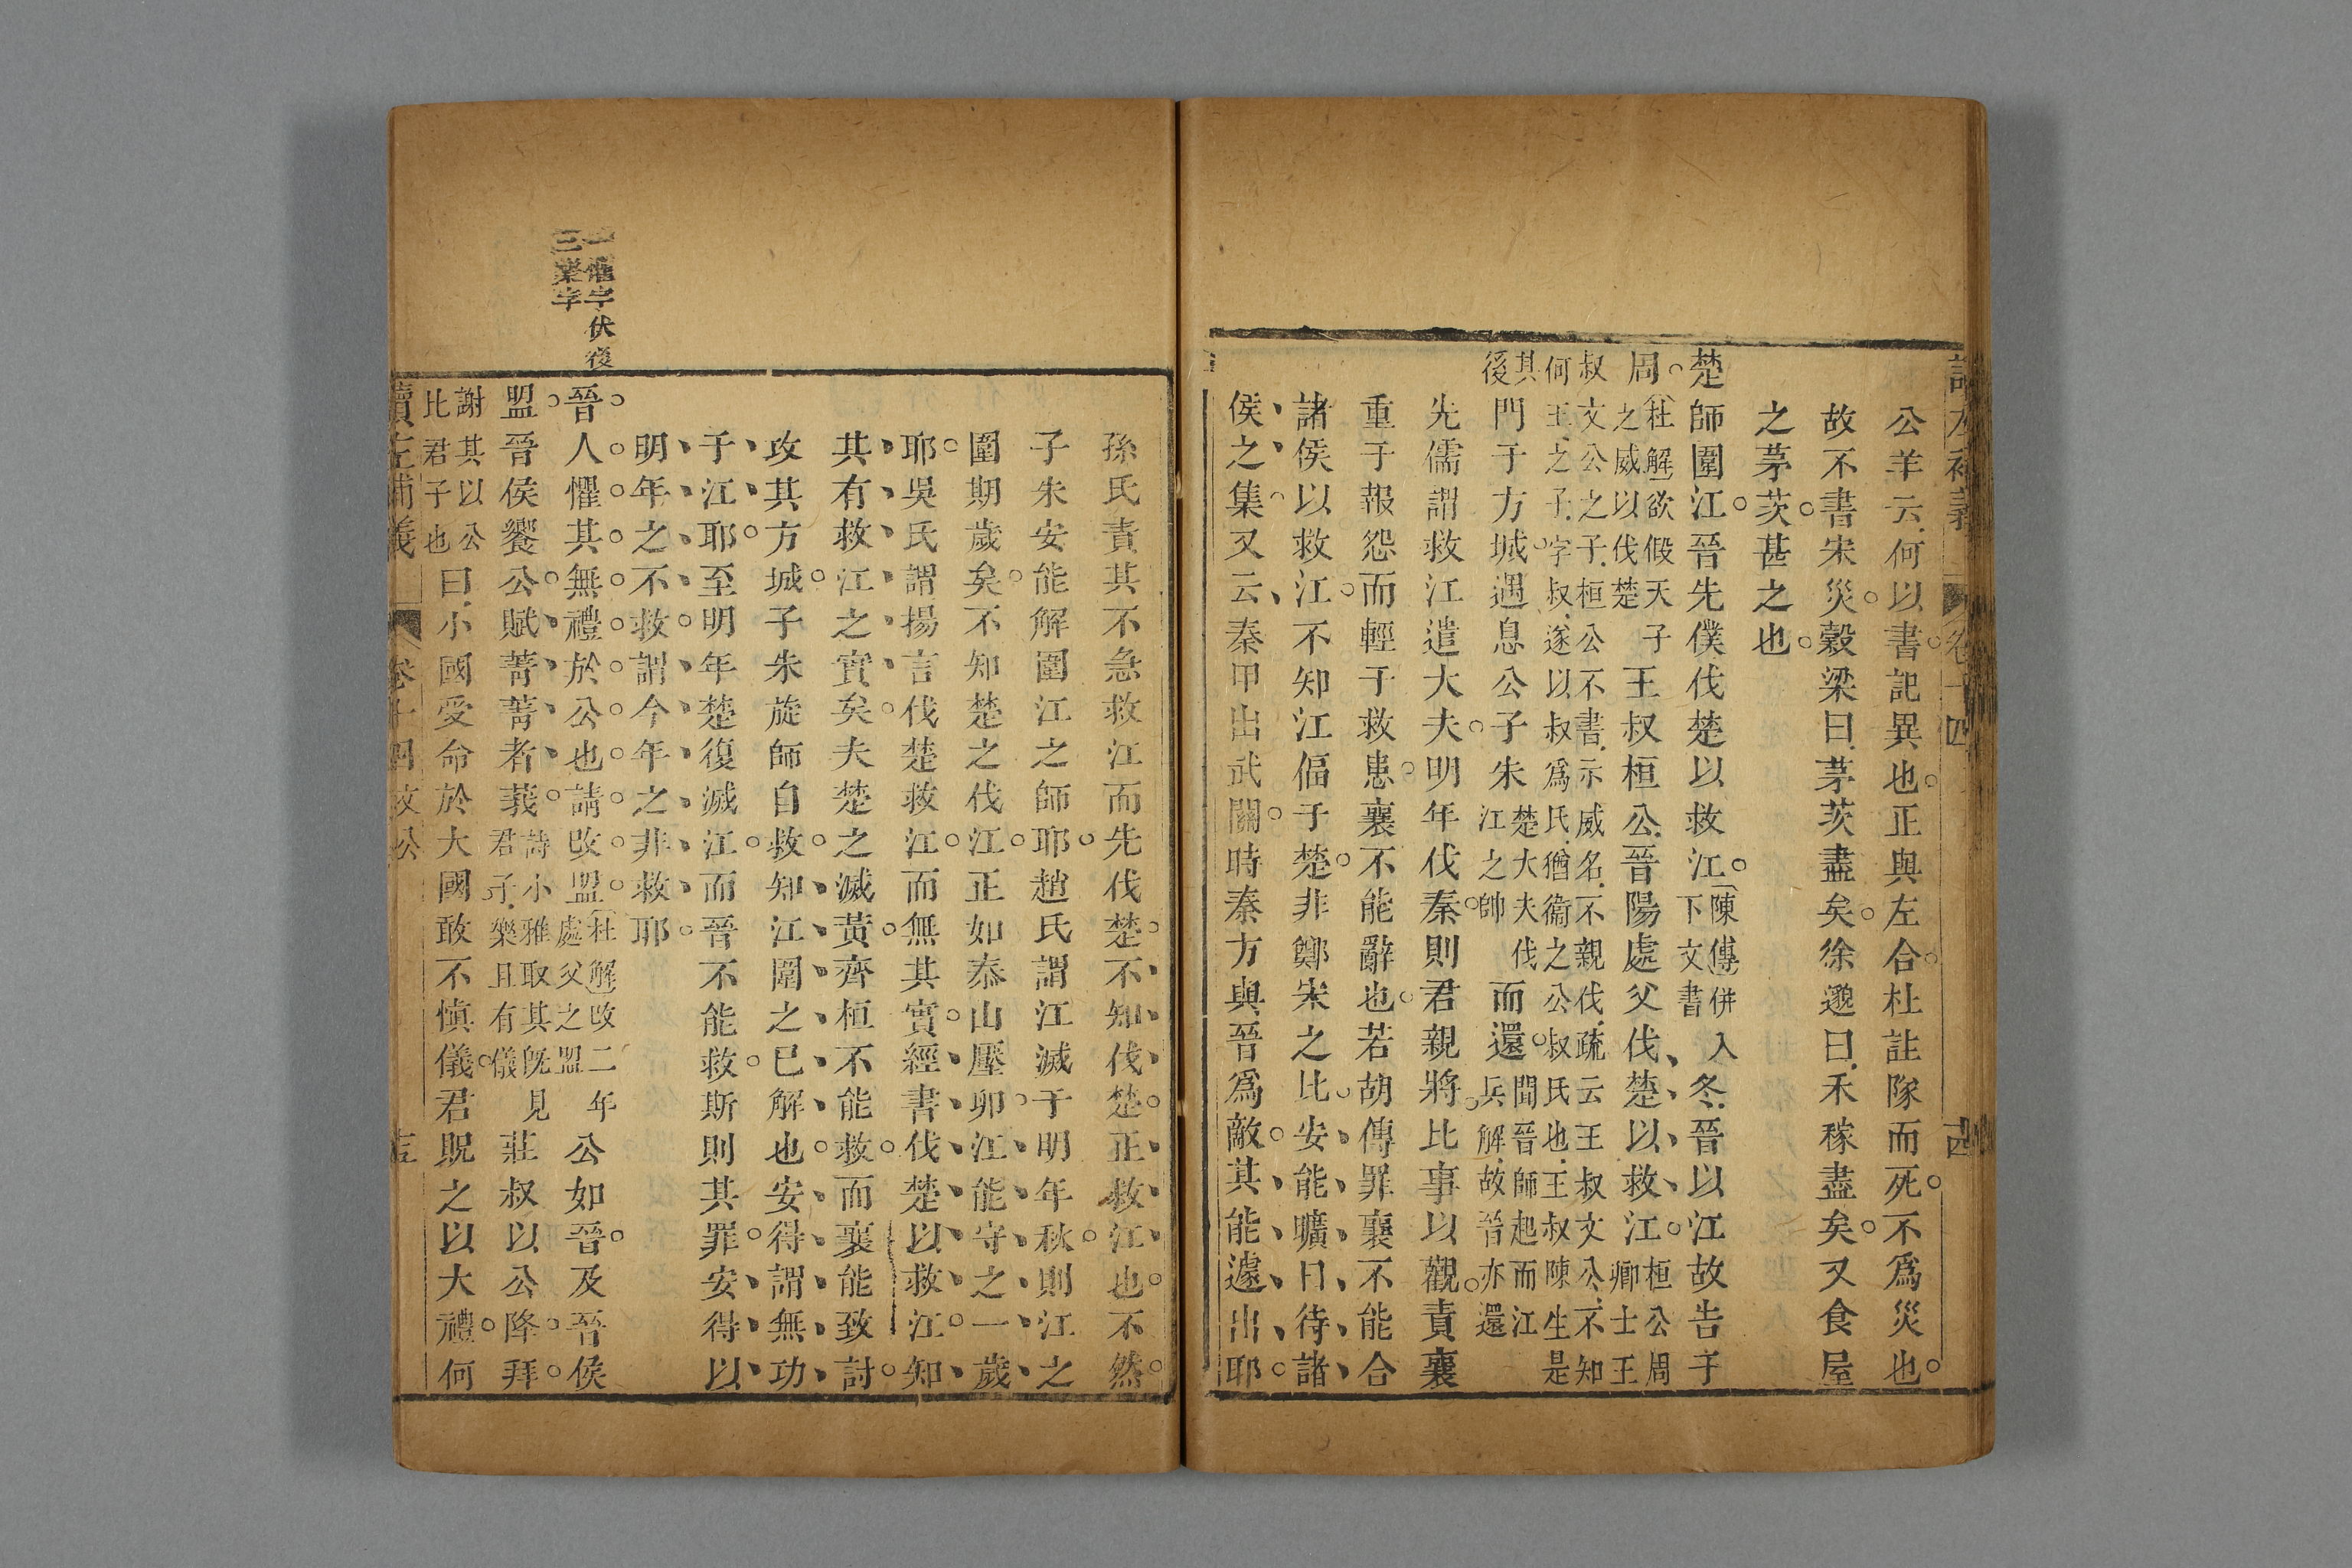 讀左補義
卷十四
公羊云何以書記異也正與左合杜註隊而死不為災也
故不書宋災穀梁曰茅茨盡矣徐邈曰禾稼盡矣又食屋
之茅茨甚之也
楚師圍江晉先僕伐楚以救江
陳傳併入
下文書
冬晉以江故告于
周
杜解欲假天子
之威以伐楚
王叔桓公晉陽處父伐楚以救江
桓公周
卿士王
叔文公之子桓公不書示威名不親伐疏云王叔文公不知
何王之子字叔遂以叔為氏猶衛之公叔氏也王叔陳生是
其
後
門于方城遇息公子朱
楚大夫伐
江之帥
而還
聞晉師起而江
兵解故晉亦還
先儒謂救江遣大夫明年伐秦則君親將比事以觀責襄
重于報怨而輕于救患襄不能辭也若胡傳罪襄不能合
諸侯以救江不知江偪于楚非鄭宋之比安能曠日待諸
侯之集又云秦甲出武關時秦方與晉為敵其能遽出耶
孫氏責其不急救江而先伐楚不知伐楚正救江也不然
子朱安能解圍江之師耶趙氏謂江滅于明年秋則江之
圍期歲矣不知楚之伐江正如泰山壓卵江能守之一歲
耶吳氏謂揚言伐楚救江而無其實經書伐楚以救江知
其有救江之實矣夫楚之滅黃齊桓不能救而襄能致討
攻其方城子朱旋師自救知江圍之已解也安得謂無功
于江耶至明年楚復滅江而晉不能救斯則其罪安得以
明年之不救謂今年之非救耶
晉人懼其無禮於公也請改盟
杜解改二年
處父之盟
公如晉及晉侯
盟晉侯饗公賦菁菁者莪
詩小雅取其旣見
君子樂且有儀
莊叔以公降拜
謝其以公
比君子也
曰小國受命於大國敢不慎儀君貺之以大禮何
讀左補義
卷十四文公